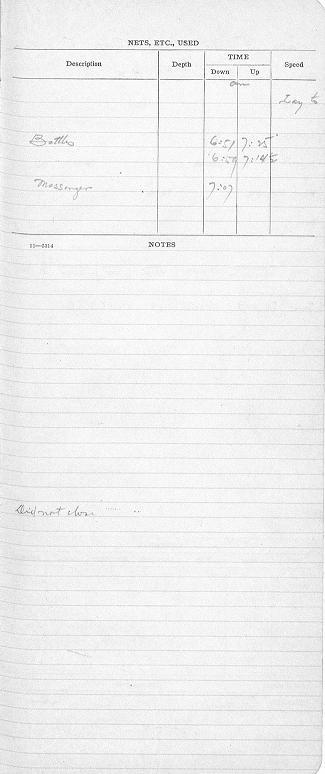 NETS, ETC., USED
Description Depth TIME Speed
Down Up
am
Lay to
Bottles 6:51 7:25
6:59 7:14½
Messenger 7:07
11—5314 NOTES
Did not close